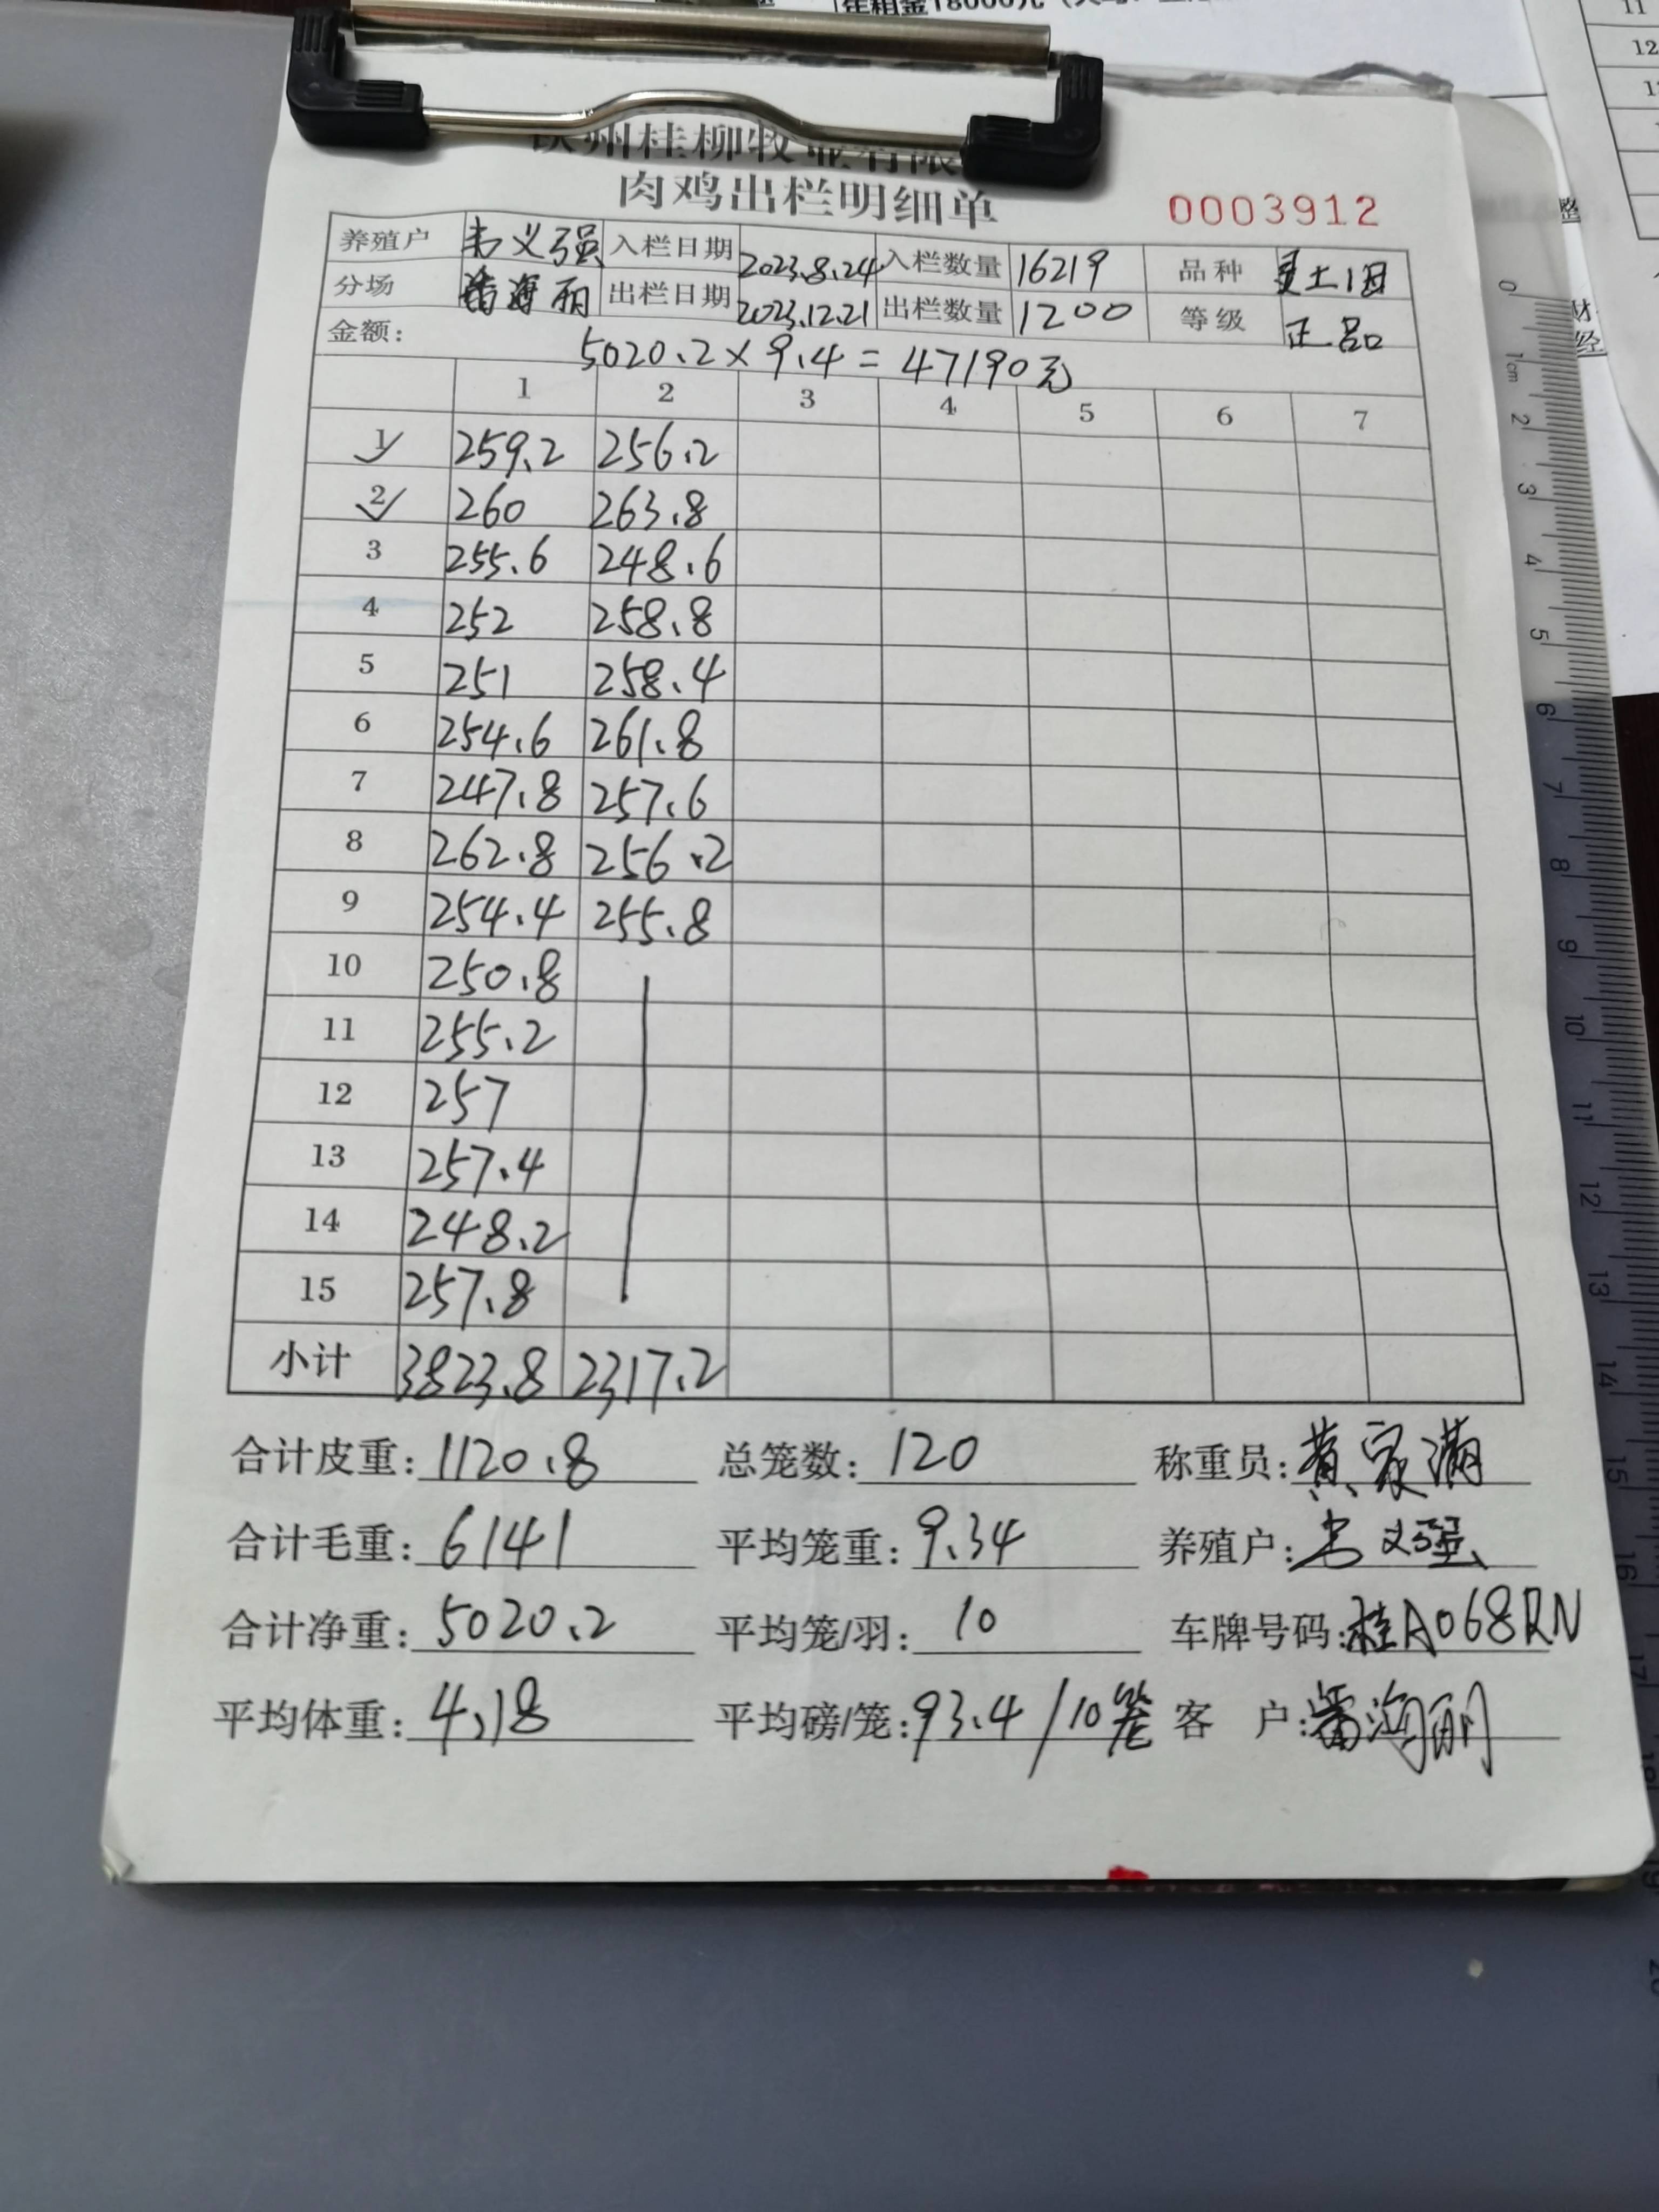 年租金18000元
州桂柳牧业有限
肉鸡出栏明细单
0003912
养殖户 韦义强 入栏日期 2023.8.24 入栏数量 16219 品种 土
分场 潘海丽 出栏日期 2023.12.21 出栏数量 1200 等级 正品
金额: 5020.2×9.4=47190元
1 2 3 4 5 6 7
1 259.2 256.2
2 260 263.8
3 255.6 248.6
4 252 258.8
5 251 258.4
6 254.6 261.8
7 247.8 257.6
8 262.8 256.2
9 254.4 255.8
10 250.8
11 255.2
12 257
13 257.4
14 248.2
15 257.8
小计 3823.8 2317.2
合计皮重: 1120.8 总笼数: 120 称重员: 黄家满
合计毛重: 6141 平均笼重: 9.34 养殖户: 韦义强
合计净重: 5020.2 平均笼/羽: 10 车牌号码: 桂A068RN
平均体重: 4.18 平均磅/笼: 93.4/10笼 客 户: 潘海丽
0 1cm 2 3 4 5 6 7 8 9 10 11 12 13 14 15 16 17